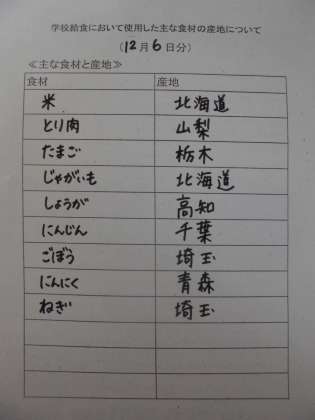 学校給食において使用した主な食材の産地について
(12月6日分)
≪主な食材と産地≫
食材 産地
米 北海道
とり肉 山梨
たまご 栃木
じゃがいも 北海道
しょうが 高知
にんじん 千葉
ごぼう 埼玉
にんにく 青森
ねぎ 埼玉